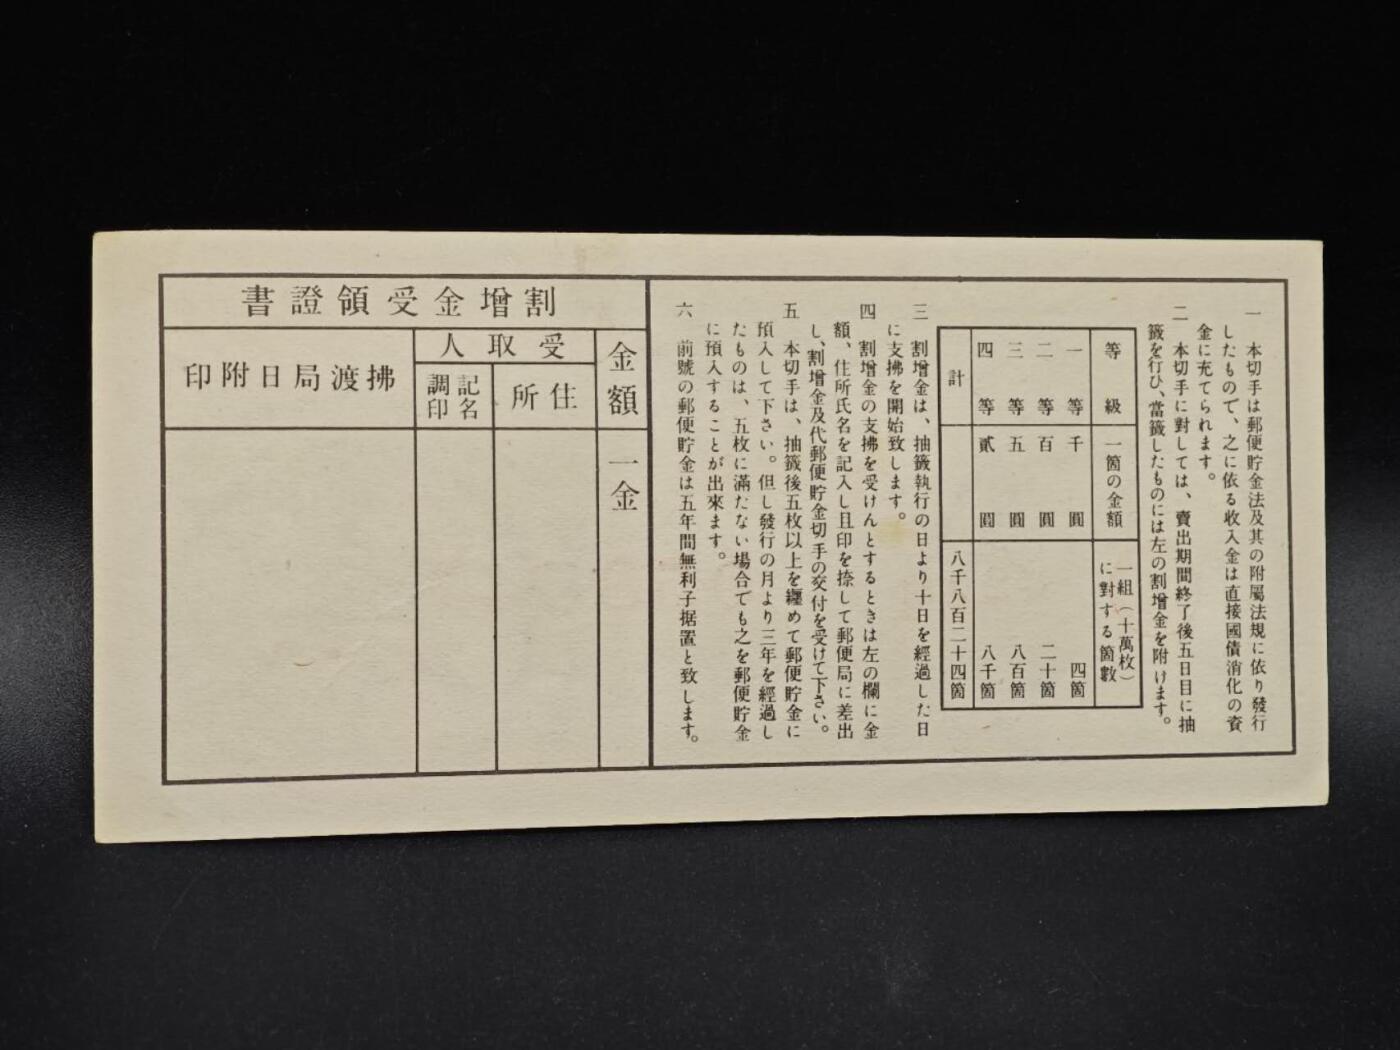 一　本切手は郵便貯金法及其の附屬法規に依り發行
したもので、之に依る收入金は直接國債消化の資
金に充てられます。
二　本切手に對しては、賣出期間終了後五日目に抽
籤を行ひ、當籤したものには左の割增金を附けます。
等級
一箇の金額
一組（十萬枚）
に對する箇數
一等
千圓
四箇
二等
百圓
二十箇
三等
五圓
八百箇
四等
貳圓
八千箇
計
八千八百二十四箇
三　割增金は、抽籤執行の日より十日を經過した日
に支拂を開始致します。
四　割增金の支拂を受けんとするときは左の欄に金
額、住所氏名を記入し且印を捺して郵便局に差出
し、割增金及代郵便貯金切手の交付を受けて下さい。
五　本切手は、抽籤後五枚以上を纒めて郵便貯金に
預入して下さい。但し發行の月より三年を經過し
たものは、五枚に滿たない場合でも之を郵便貯金
に預入することが出來ます。
六　前號の郵便貯金は五年間無利子据置と致します。
割增金受領證書
金額
一金
受取人
住所
記名
調印
拂渡局日附印